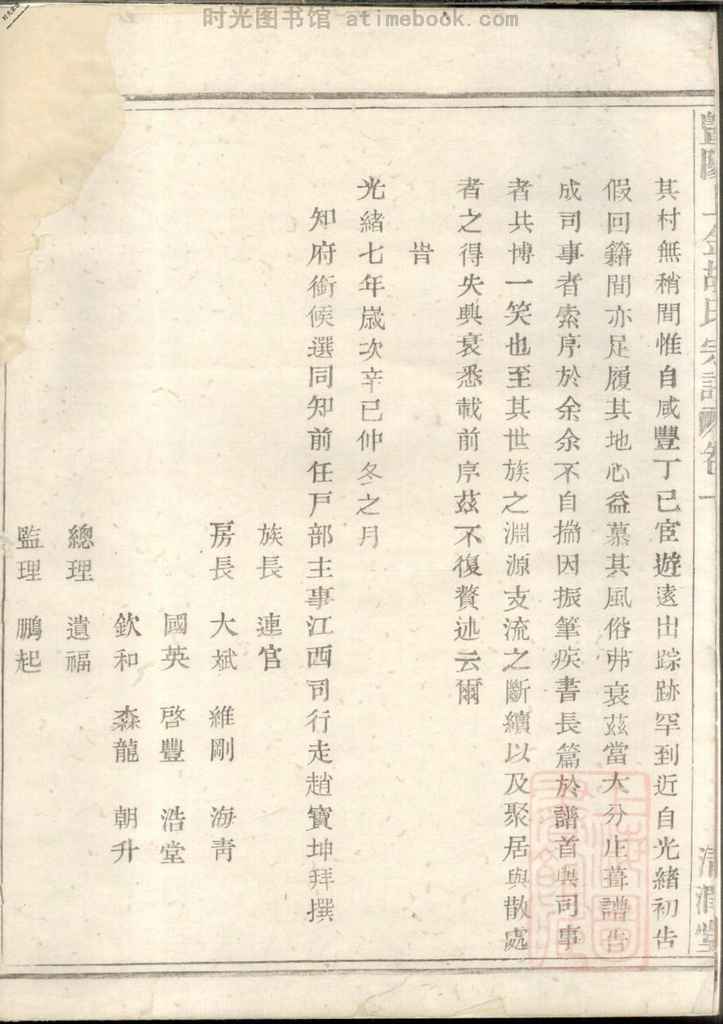 时光图书馆 atimebook.com
其村無稍間惟自咸豐丁巳宦遊遠出踪跡罕到近自光緒初告
假回籍間亦足履其地心益慕其風俗弗衰茲當大分庄葺譜告
成司事者索序於余余不自揣因振筆疾書長篇於譜首與司事
者共博一笑也至其世族之淵源支流之斷續以及聚居與散處
者之得失興衰悉載前序茲不復贅述云爾
旹
光緒七年歲次辛巳仲冬之月
知府銜候選同知前任戶部主事江西司行走趙寶坤拜撰
族長 連官
房長 大斌 維剛 海青
國英 啓豐 浩堂
欽和 森龍 朝升
總理 遺福
監理 鵬起